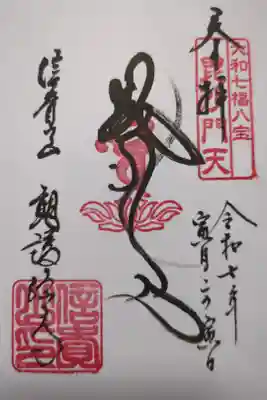 大和七福八宝
毘沙門天
奉拝
令和七年
寅月二の寅日
信貴山
朝護孫子寺
信貴山印